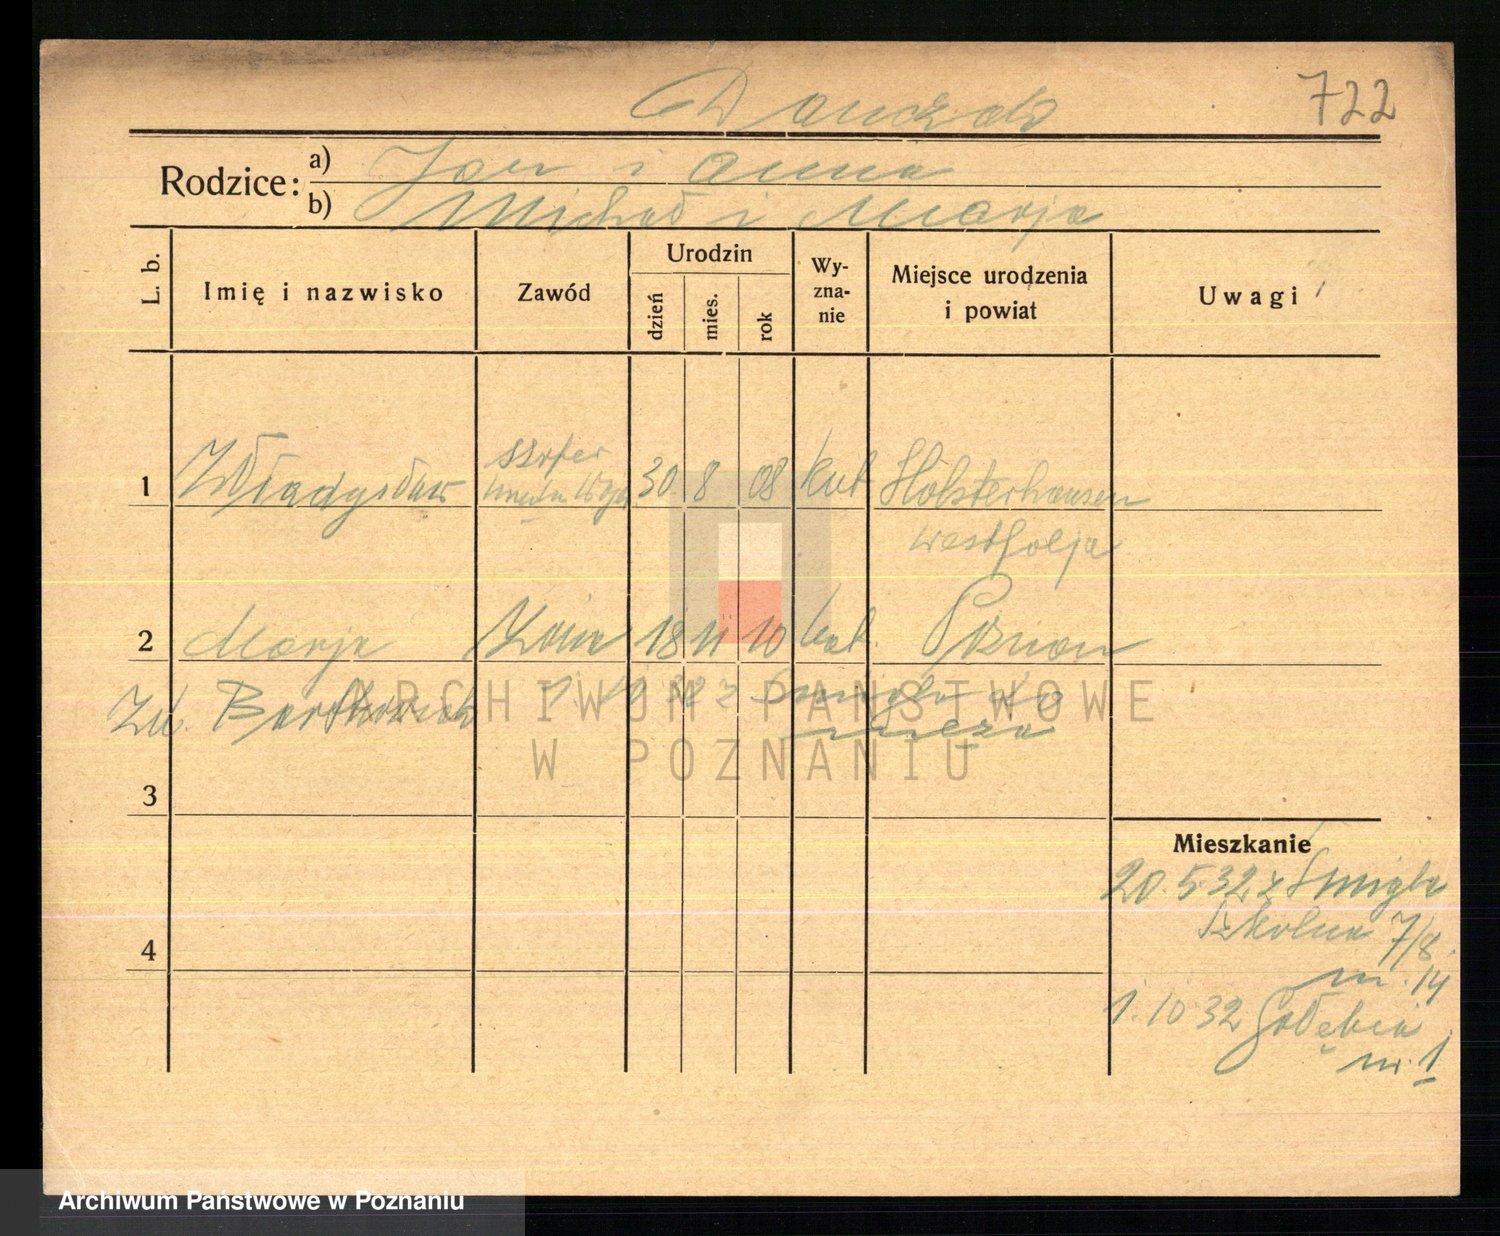 722
Rodzice:
a) Jan i Anna
b) Michał i Marja
L. b.
Imię i nazwisko
Zawód
Urodzin
dzień
mies.
rok
Wy-
zna-
nie
Miejsce urodzenia
i powiat
Uwagi
1 Władysław szofer 30 8 08 kat Holsterhausen
Westfalja
2 Marja żona 18 11 10 kat. Poznań
1. 10 32 z Śmigla do
męża
3
4
Mieszkanie
20.5.32 z Śmigla
Szkolna 7/8.
m. 14
1. 10 32 Gołębia
nr. 1
ARCHIWUM PAŃSTWOWE
W POZNANIU
Archiwum Państwowe w Poznaniu